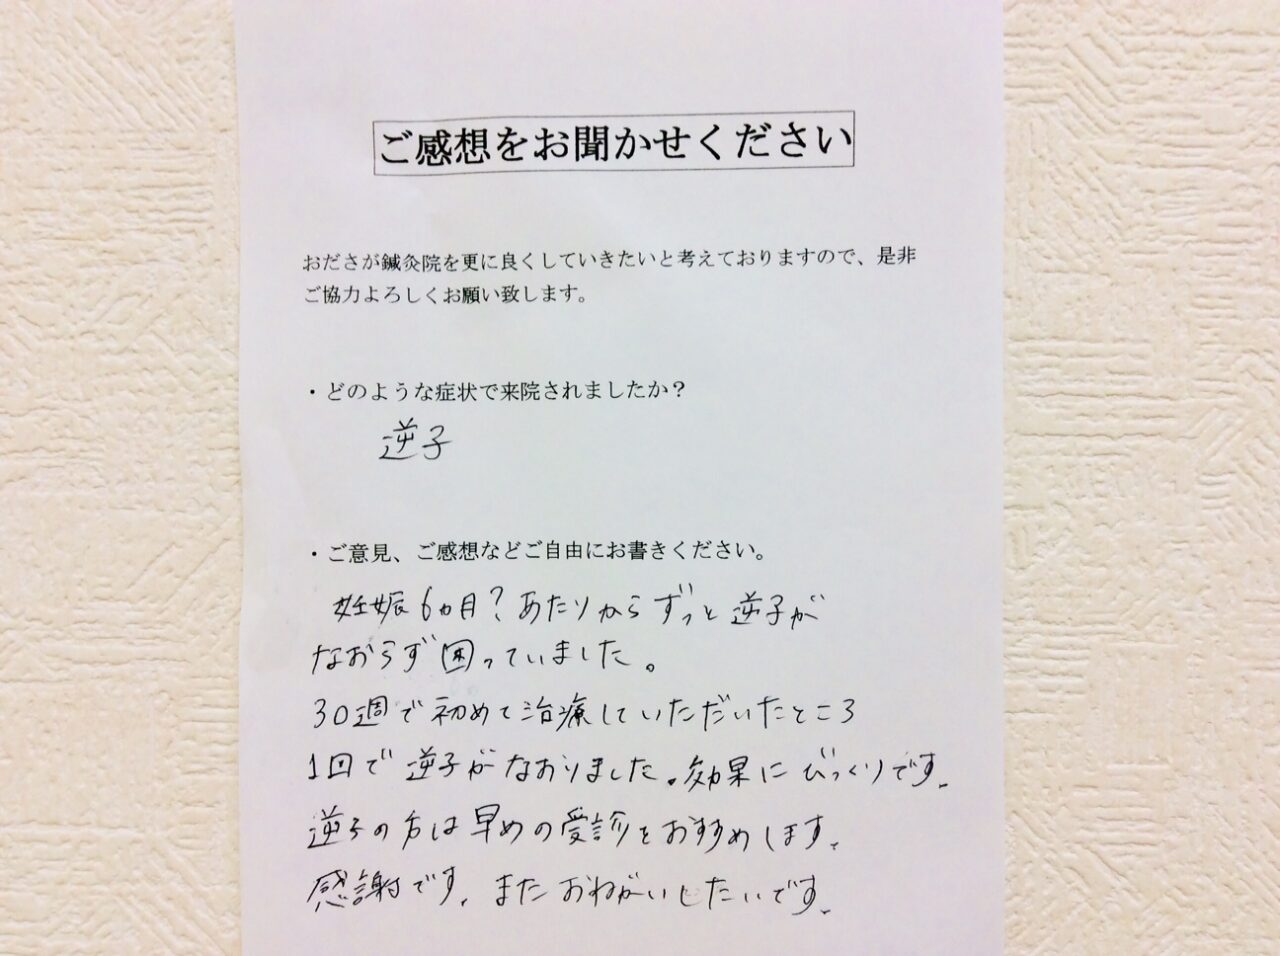 ご感想をお聞かせください
おださが鍼灸院を更に良くしていきたいと考えておりますので、是非
ご協力よろしくお願い致します。
・どのような症状で来院されましたか?
逆子
・ご意見、ご感想などご自由にお書きください。
妊娠6ヵ月?あたりからずっと逆子が
なおらず困っていました。
30週で初めて治療していただいたところ
1回で逆子がなおりました。効果にびっくりです。
逆子の方は早めの受診をおすすめします。
感謝です。またおねがいしたいです。